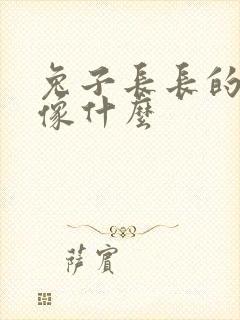 兔子長長的
像什麼
薩賓